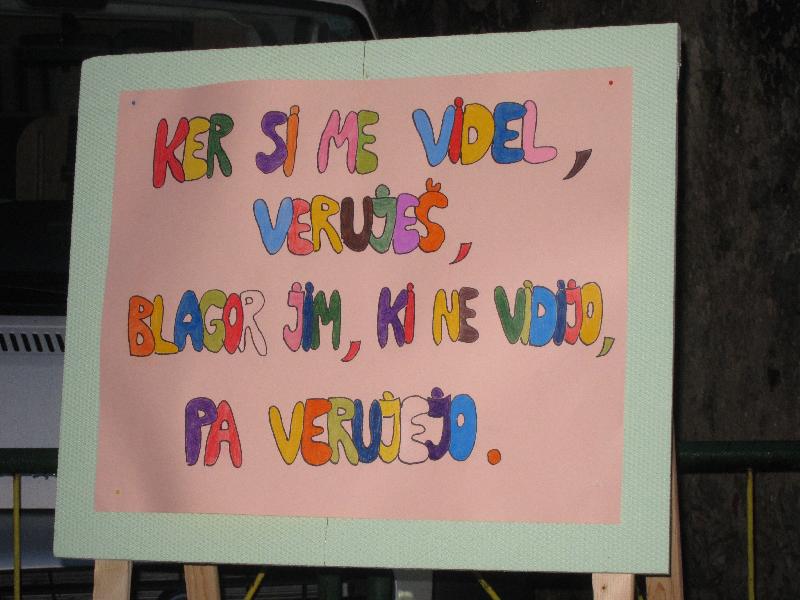 KER SI ME VIDEL,
VERUJEŠ,
BLAGOR JIM, KI NE VIDIJO,
PA VERUJEJO.